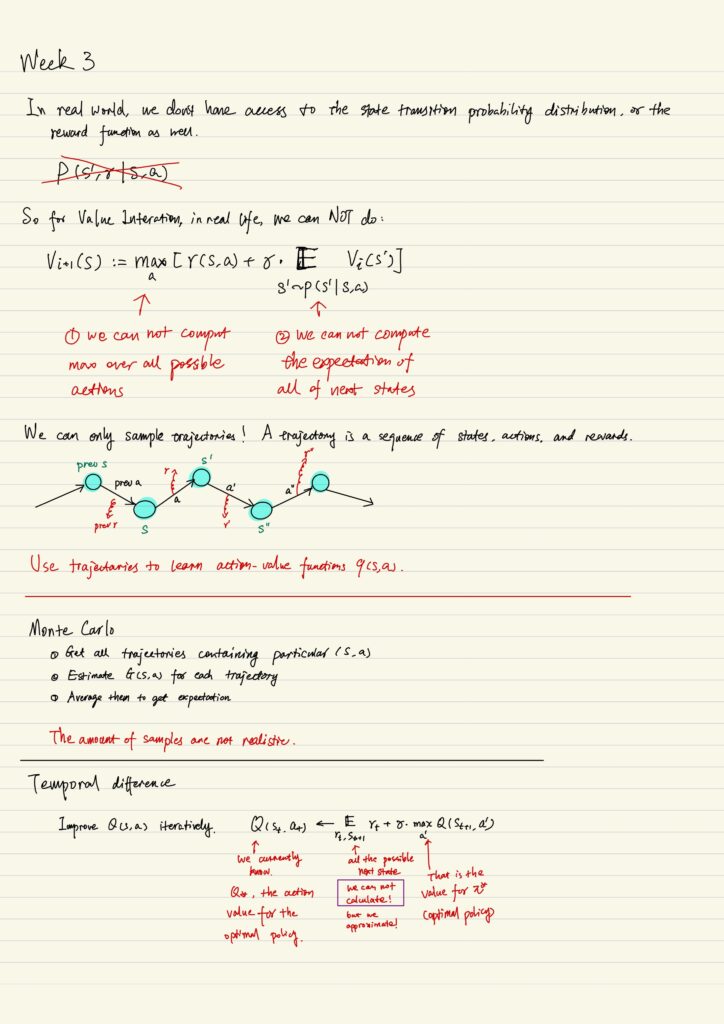 Week 3
In real world, we don't have access to the state transition probability distribution, or the
reward function as well.
P(s', r | s, a)
So for Value Interation, in real life, we can NOT do:
Vi+1(s) := max [r(s,a) + γ· 𝔼 Vi(s')]
a
s'~p(s'|s,a)
① we can not comput
max over all possible
actions
② we can not compute
the expectation of
all of next states
We can only sample trajectories! A trajectory is a sequence of states, actions, and rewards.
prev s
prev a
prev r
s
r
a
s'
a'
r'
s"
a"
r"
Use trajectories to learn action-value functions q(s,a).
Monte Carlo
① Get all trajectories containing particular (s,a)
② Estimate G(s,a) for each trajectory
③ Average them to get expectation
The amount of samples are not realistic.
Temporal difference
Improve Q(s,a) iteratively. Q(st, at) ← 𝔼 rt + γ· max Q(st+1, a')
rt, st+1
a'
we currently
know.
Q*, the action
value for the
optimal policy.
all the possible
next state
we can not
calculate!
but we
approximate!
That is the
value for π*
(optimal policy)